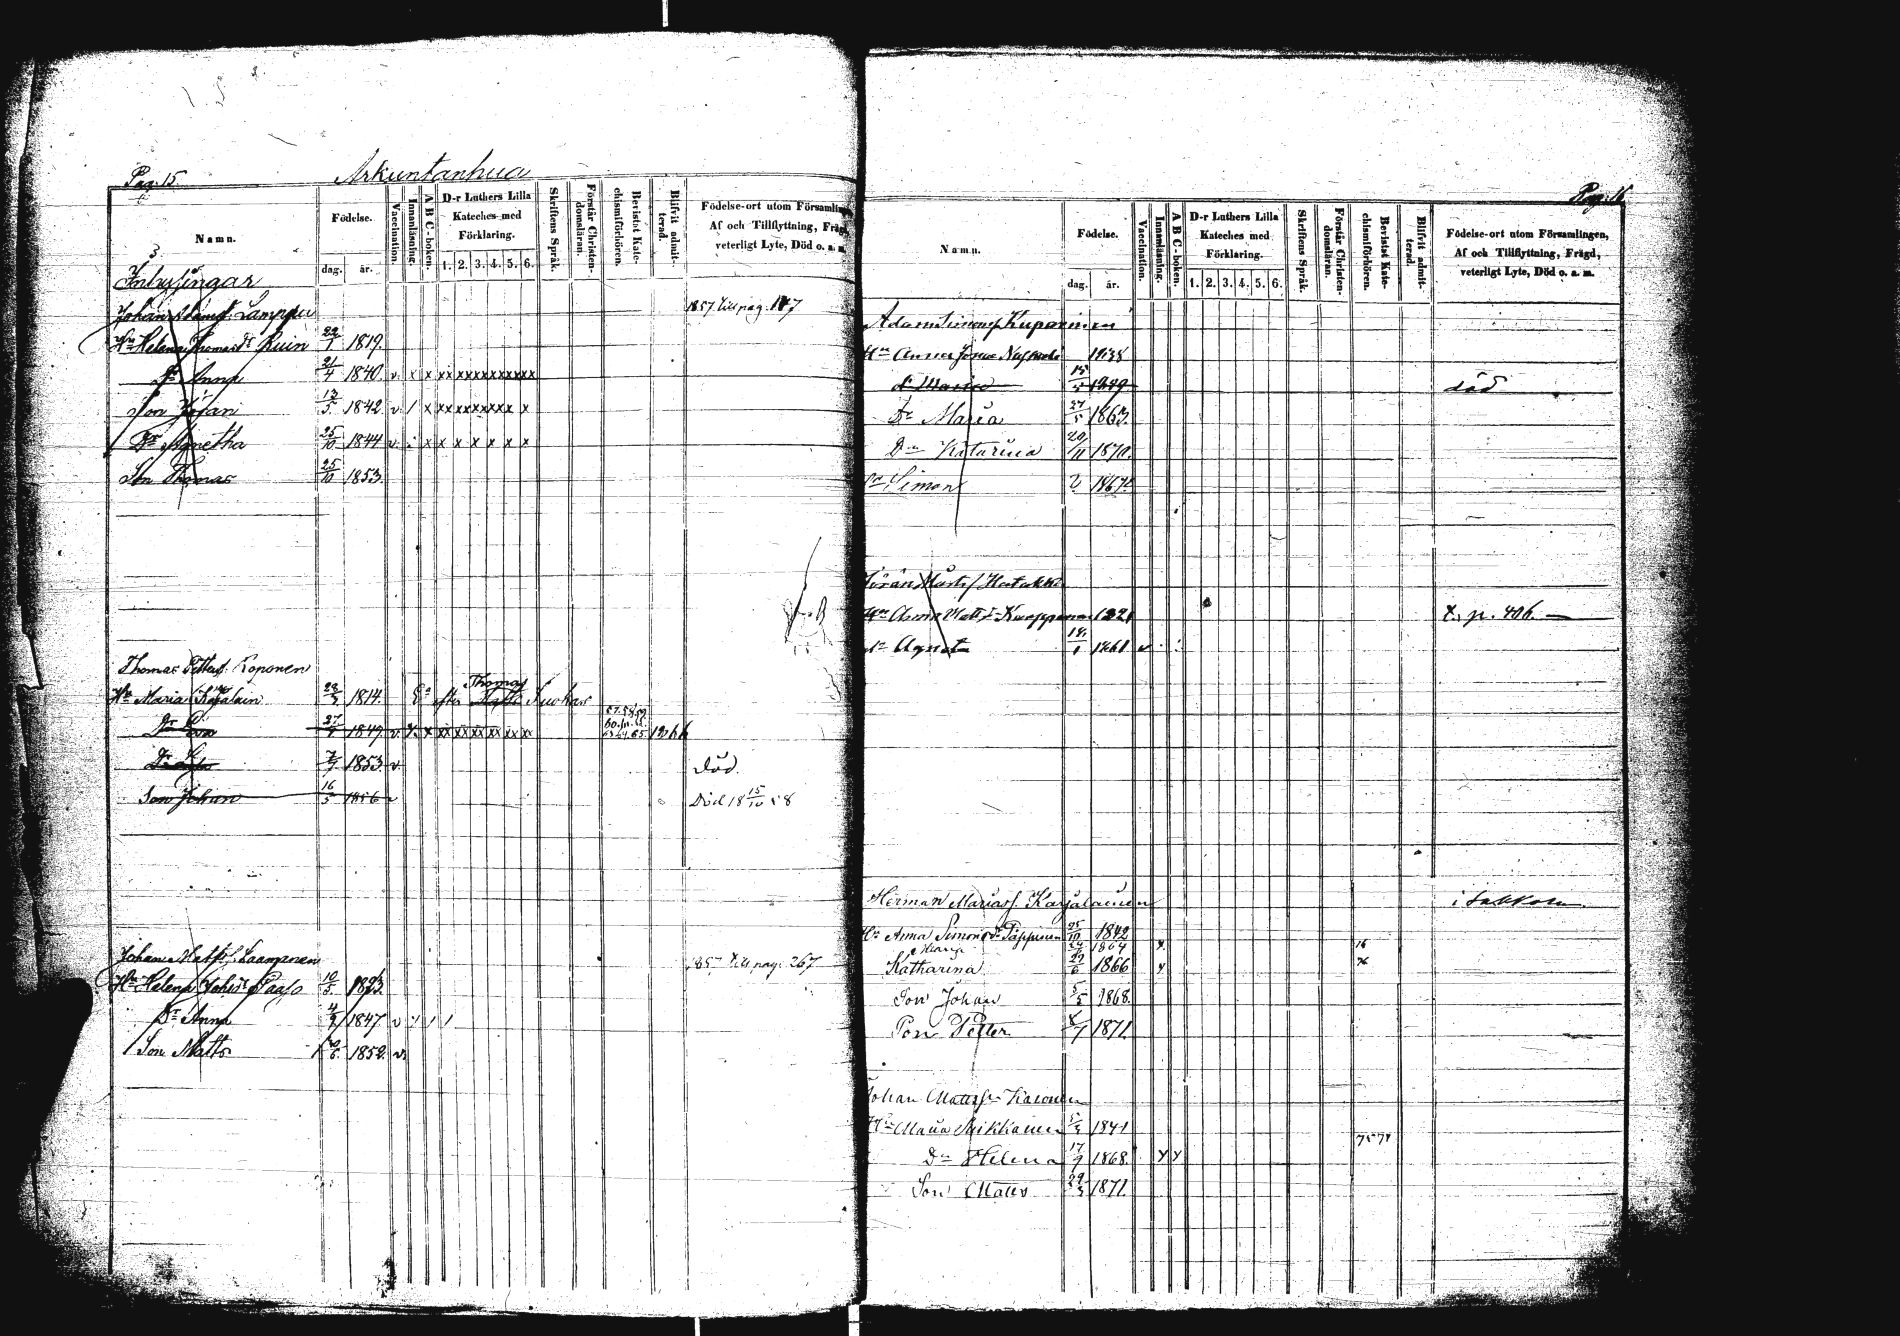 Pag. 15
Arkuntanhua
Namn.
Födelse.
dag. år.
Vaccination.
Innanläsning.
A B C-boken.
D-r Luthers Lilla Kateches med Förklaring.
1. 2. 3. 4. 5. 6.
Skriftens Språk.
Förstår Christendomsläran.
Bevistat Katechismiförhören.
Blifvit admitterad.
Födelse-ort utom Församlingen,
Af och Tillflyttning, Frägd,
veterligt Lyte, Död o. a. m.
Inhysingar
Johan Adamsf. Lamppu 1857 till pag. 177
Hu Helena Thomas Dr Ruin 22/1 1819.
Dr Anna 21/4 1840. v. x x xx xx xx xx xx xx
Son Johan 12/5 1842 v. / x xx xx xx xx x x
Dr Agnetha 25/10 1844 v. x x x x x x x
Son Thomas 25/10 1853.
Thomas Pettersf. Koponen
Hu Maria Karjalain 22/3 1814. Ea efter Thomas Suokas
Dr Eva 27/4 1847. v. x. x xx xx xx xx xx xx 57.58.59 60.61.62. 63.64.65. 1866
Dr 7/7 1853. v. död.
Son Johan 16/5 1856 v Död 18 15/10 58
Johan Mattsf. Laamponen 1857 till pag. 267
Hu Helena Johs Dr Paaso 10/5 1823.
Dr Anna 4/9 1847 v / / /
Son Matts 20/6 1852. v.
Pag. 16
Namn.
Födelse.
dag. år.
Vaccination.
Innanläsning.
A B C-boken.
D-r Luthers Lilla Kateches med Förklaring.
1. 2. 3. 4. 5. 6.
Skriftens Språk.
Förstår Christendomsläran.
Bevistat Katechismiförhören.
Blifvit admitterad.
Födelse-ort utom Församlingen,
Af och Tillflyttning, Frägd,
veterligt Lyte, Död o. a. m.
Adam Simonsf. Kuparinen
Hu Anna 1838
dr Maria 15/5 död
Dr Maria 27/5 1863.
Dr Katarina 20/11 1870.
Sn Simon 1867.
Göran Mårtsf Hatakka
Hu Anna Matts Dr Kaupponen 1821 t. p. 406.
Dr Agnet 18/1 1861 v
Herman Mariasf. Karjalainen i Sakkola
Hu Anna Simons Dr Päppinen 25/10 1842
Maria 24/ 1864 x. 16
Katharina 22/6 1866 y x
Son Johan 5/5 1868.
Son Petter 8/7 1871.
Johan Mattsf. Kasonen
Hu Maria Mikkainen 5/3 1841 75 71
Dr Helena 17/9 1868. y y
Son Matts 29/3 1871.